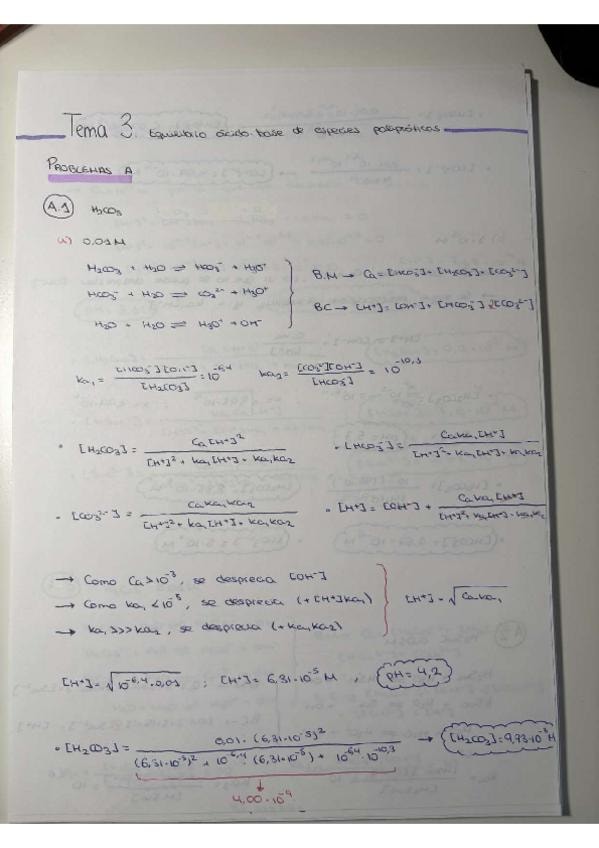 Tema 3. Equilibrio ácido-base de especies polipróticas
PROBLEMAS A
A.1 H₂CO₃
a) 0.01M
H₂CO₃ + H₂O ⇌ HCO₃⁻ + H₃O⁺
HCO₃⁻ + H₂O ⇌ CO₃²⁻ + H₃O⁺
H₂O + H₂O ⇌ H₃O⁺ + OH⁻
B.M → Ca = [HCO₃⁻] + [H₂CO₃] + [CO₃²⁻]
BC → [H⁺] = [OH⁻] + [HCO₃⁻] 2[CO₃²⁻]
Ka₁ = [HCO₃⁻][OH⁻] / [H₂CO₃] = 10^-6,4 Ka₂ = [CO₃²⁻][OH⁻] / [HCO₃⁻] = 10^-10,3
• [H₂CO₃] = Ca[H⁺]² / [H⁺]² + Ka₁[H⁺] + Ka₁Ka₂ • [HCO₃⁻] = CaKa₁[H⁺] / [H⁺]² + Ka₁[H⁺] + Ka₁Ka₂
• [CO₃²⁻] = CaKa₁Ka₂ / [H⁺]² + Ka₁[H⁺] + Ka₁Ka₂ • [H⁺] = [OH⁻] + CaKa₁[H⁺] / [H⁺]² + Ka₁[H⁺] + Ka₁Ka₂
→ Como Ca > 10⁻³, se desprecia [OH⁻]
→ Como Ka₁ < 10⁻⁵, se desprecia (+[H⁺]Ka₁)
→ Ka₁ >>> Ka₂, se desprecia (+Ka₁Ka₂)
[H⁺] = √CaKa₁
[H⁺] = √10^-6,4 · 0,01 ; [H⁺] = 6,31·10⁻⁵ M , pH = 4,2
• [H₂CO₃] = 0,01 · (6,31·10⁻⁵)² / (6,31·10⁻⁵)² + 10^-6,4 · (6,31·10⁻⁵) + 10^-6,4 · 10^-10,3 → [H₂CO₃] = 9,93·10⁻³ M
4,00·10⁻⁹